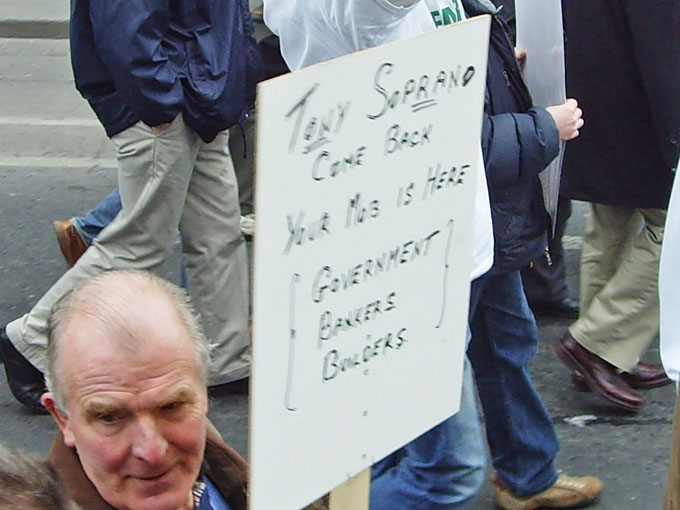 TONY SOPRANO
COME BACK
YOUR MOB IS HERE
[GOVERNMENT
BANKERS
BUILDERS.]